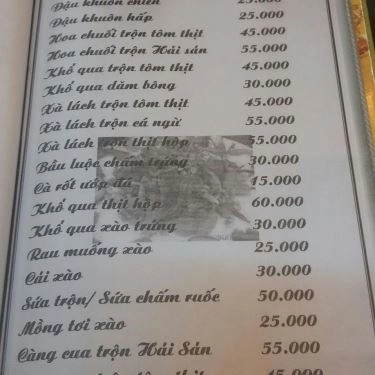 Đậu khuôn chiên 25.000
Đậu khuôn hấp 25.000
Hoa chuối trộn tôm thịt 45.000
Hoa chuối trộn Hải sản 55.000
Khổ qua trộn tôm thịt 45.000
Khổ qua dăm bông 30.000
Xà lách trộn tôm thịt 45.000
Xà lách trộn cá ngừ 55.000
Xà lách trộn thịt hộp 55.000
Bầu luộc chấm trứng 30.000
Cà rốt ướp đá 45.000
Khổ qua thịt hộp 60.000
Khổ qua xào trứng 30.000
Rau muống xào 25.000
Cải xào 30.000
Sứa trộn/ Sứa chấm ruốc 50.000
Mồng tơi xào 25.000
Càng cua trộn Hải Sản 55.000
trộn tôm thịt 45.000